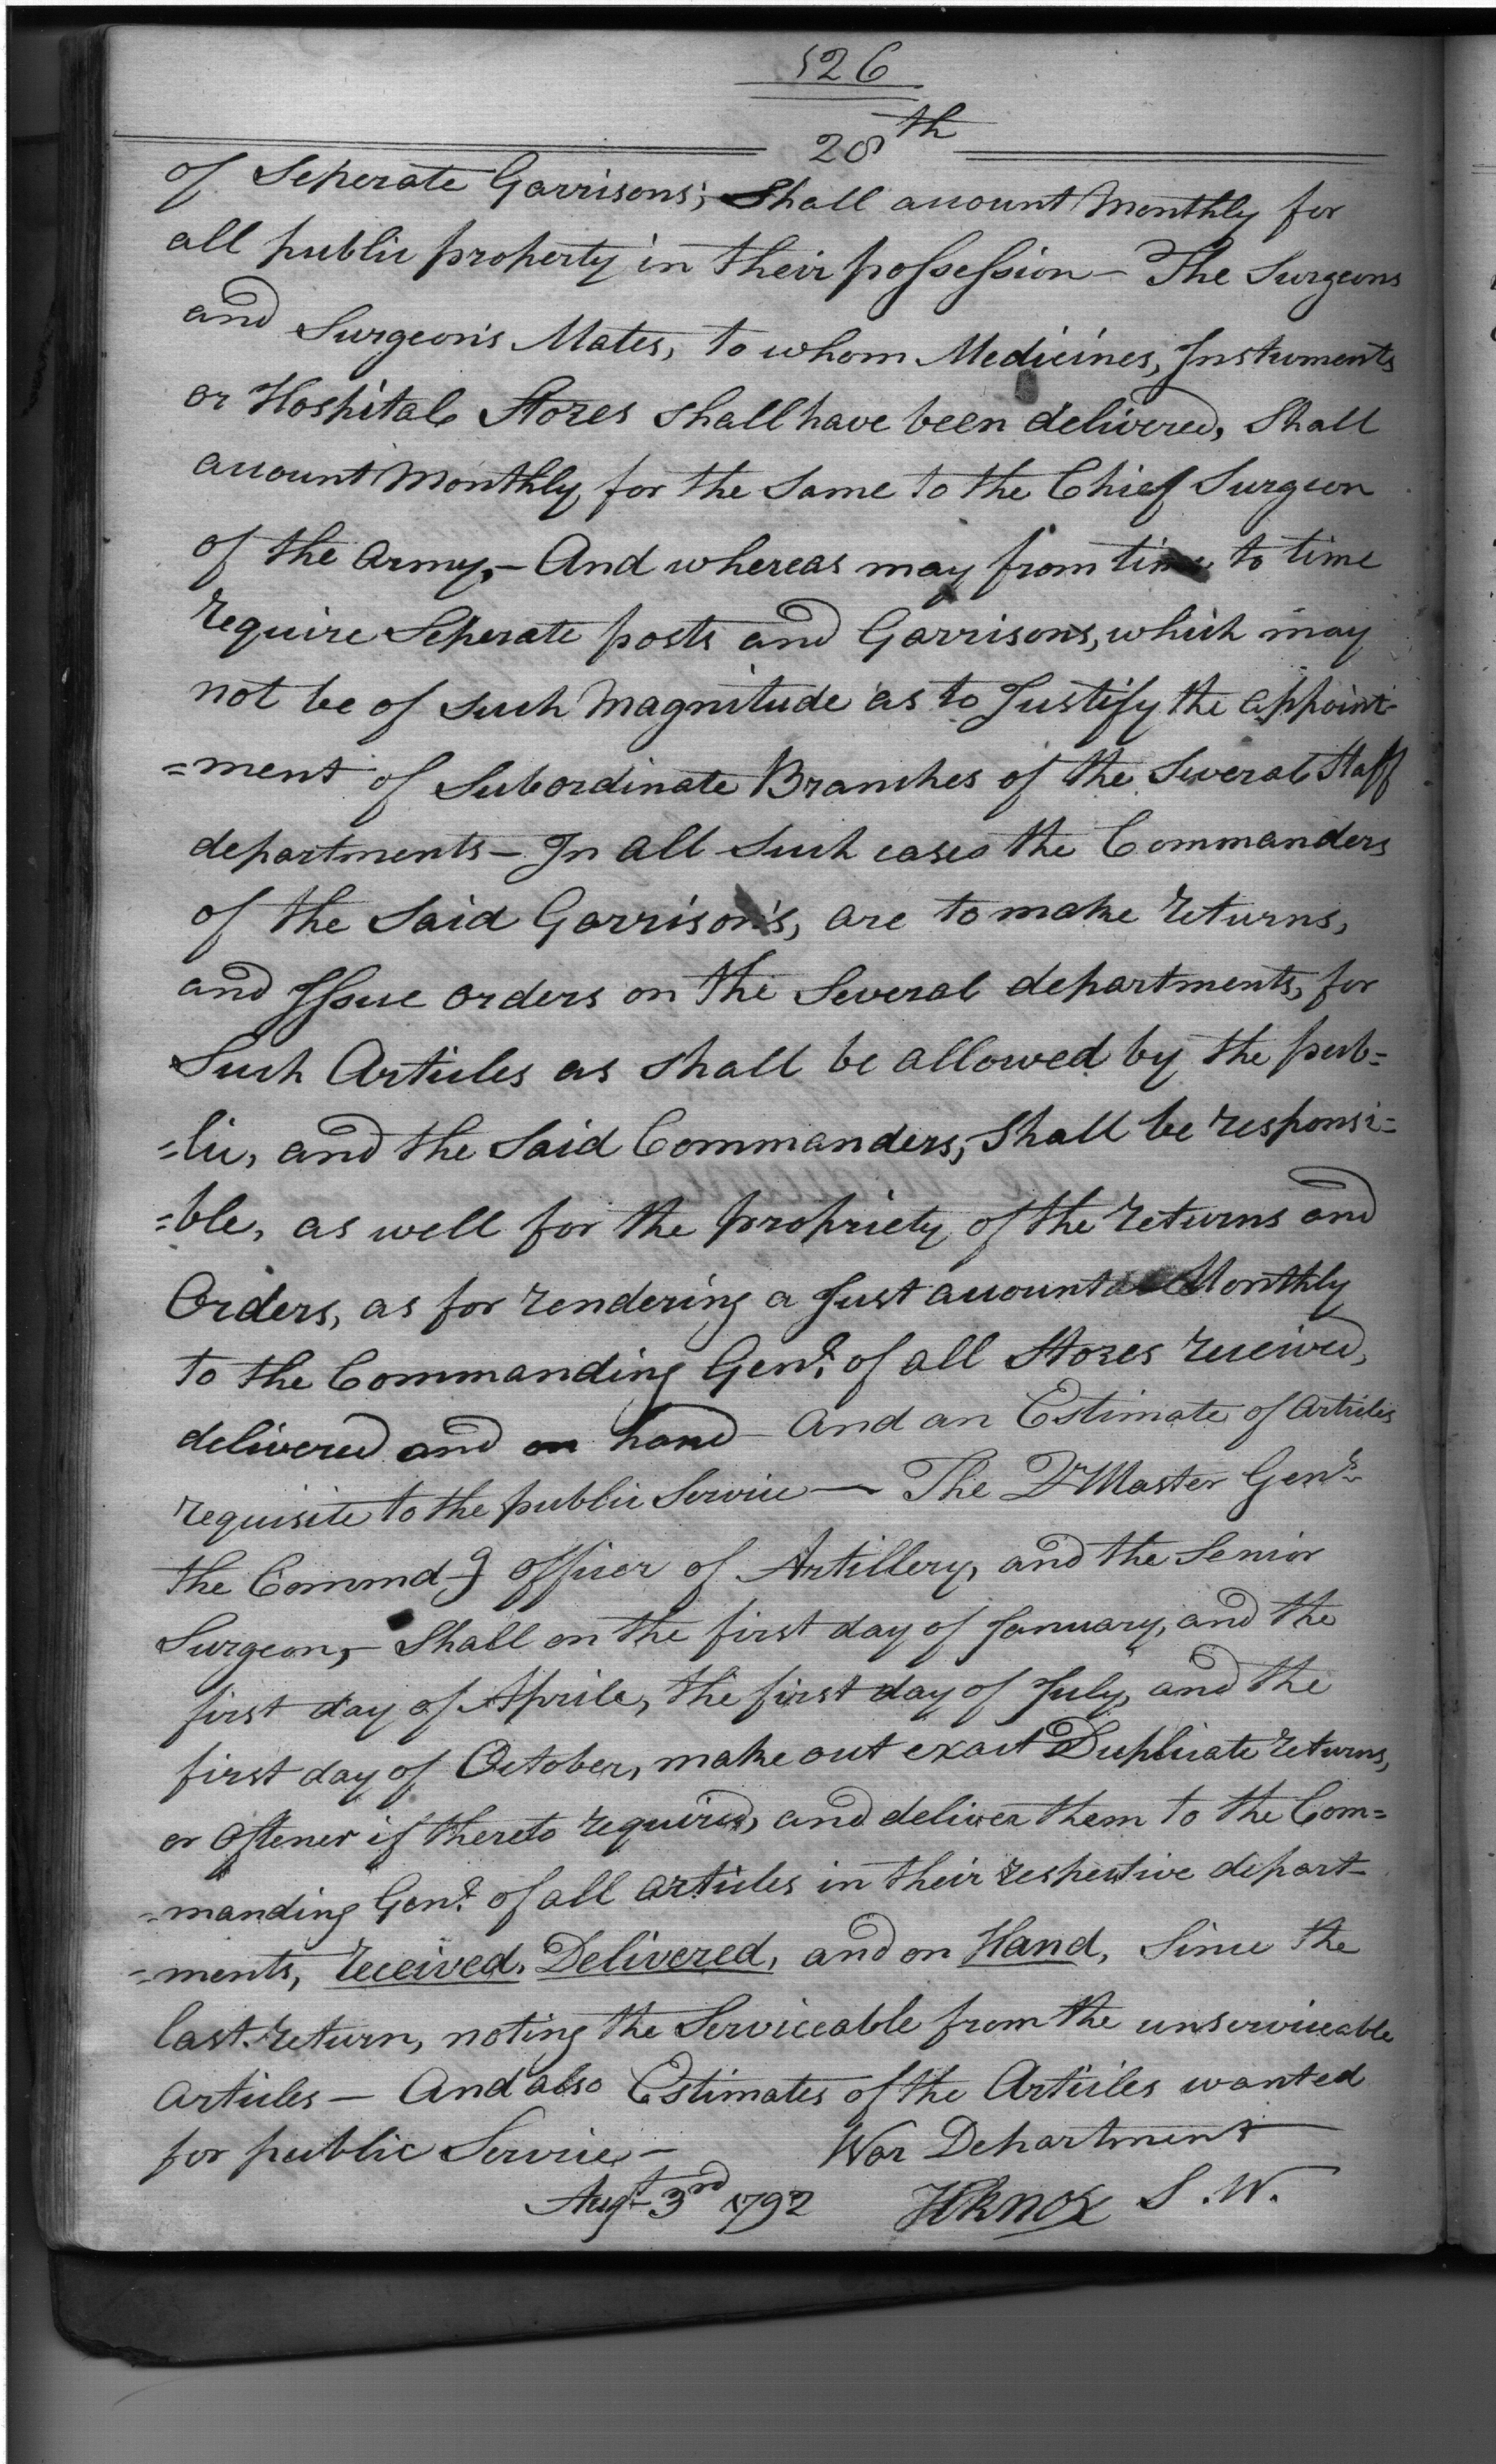 526
28th
of Seperate Garrisons; Shall account Monthly for
all public property in their possession — The Surgeons
and Surgeon's Mates, to whom Medicines, Instruments
or Hospital Stores shall have been delivered, Shall
account Monthly for the Same to the Chief Surgeon
of the Army, — And whereas may from time to time
require Seperate posts and Garrisons, which may
not be of Such Magnitude as to Justify the appoint-
=ment of Subordinate Branches of the Several Staff
departments — In all Such cases the Commanders
of the Said Garrison's, are to make returns,
and Issue orders on the Several departments, for
Such Articles as shall be allowed by the pub=
=lic, and the Said Commanders, Shall be responsi=
=ble, as well for the propriety of the returns and
Orders, as for rendering a Just account Monthly
to the Commanding Genl. of all Stores received,
delivered and on hand — and an Estimate of Articles
requisite to the public Service — The Qr Master Genl.
the Commdg officer of Artillery, and the Senior
Surgeon, — Shall on the first day of January, and the
first day of Aprile, the first day of July, and the
first day of October, make out exact Duplicate returns,
or oftener if thereto required, and deliver them to the Com=
=manding Genl. of all articles in their respective depart-
=ments, received, Delivered, and on Hand, Since the
last return, noting the Serviceable from the unserviceable
articles — And also Estimates of the Articles wanted
for public Service — War Department
Augt 3rd 1792 HKnox S.W.